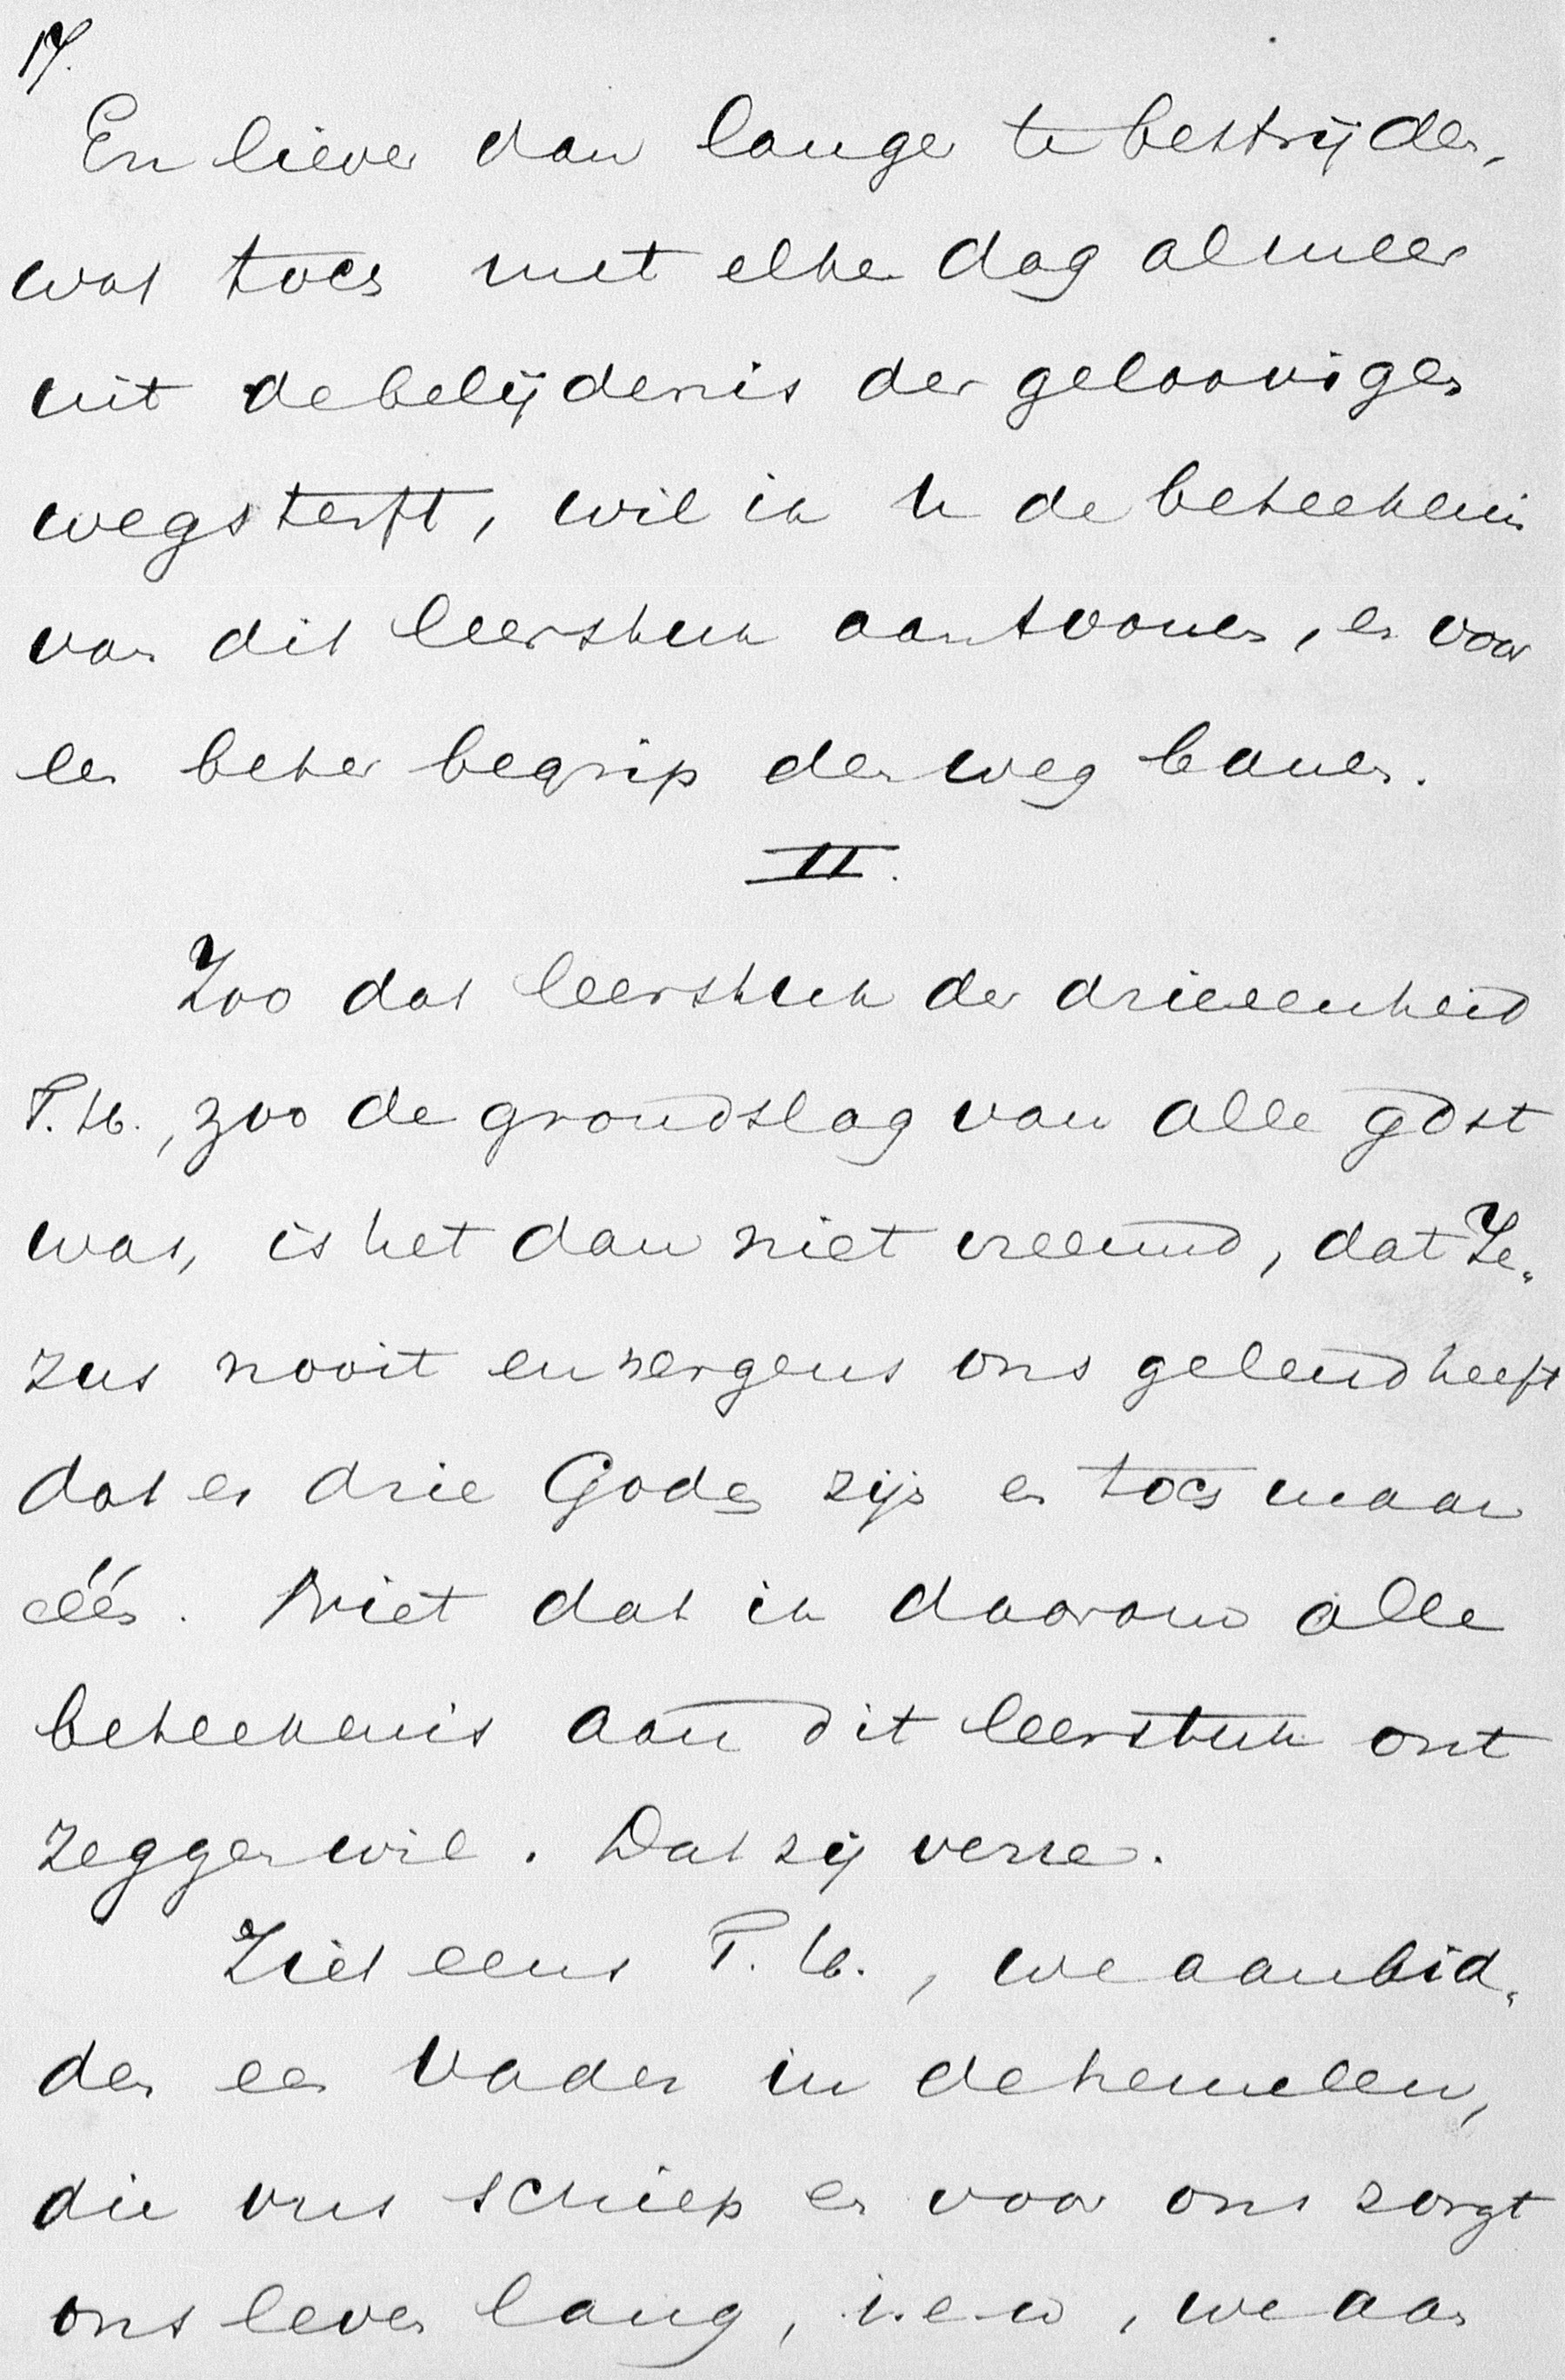 17.
En liever dan langer te bestrijden,
wat toch met elken dag al meer
uit de belijdenis der geloovigen
wegsterft, wil ik U de beteekenis
van dit leerstuk aantoonen, en voor
een beter begrip den weg banen.
II.
Zoo dat leerstuk der drieeenheid
T.H., zoo de grondslag van alle gdst
was, is het dan niet vreemd, dat Je„
zus nooit en nergens ons geleerd heeft
dat er drie Goden zijn en toch maar
één. Niet dat ik daarom alle
beteekenis aan dit leerstuk ont
zeggen wil. Dat zij verre.
Ziet eens T.H., we aanbid„
den een Vader in de hemelen,
die ons schiep en voor ons zorgt
ons leven lang, i.e.w, we aan